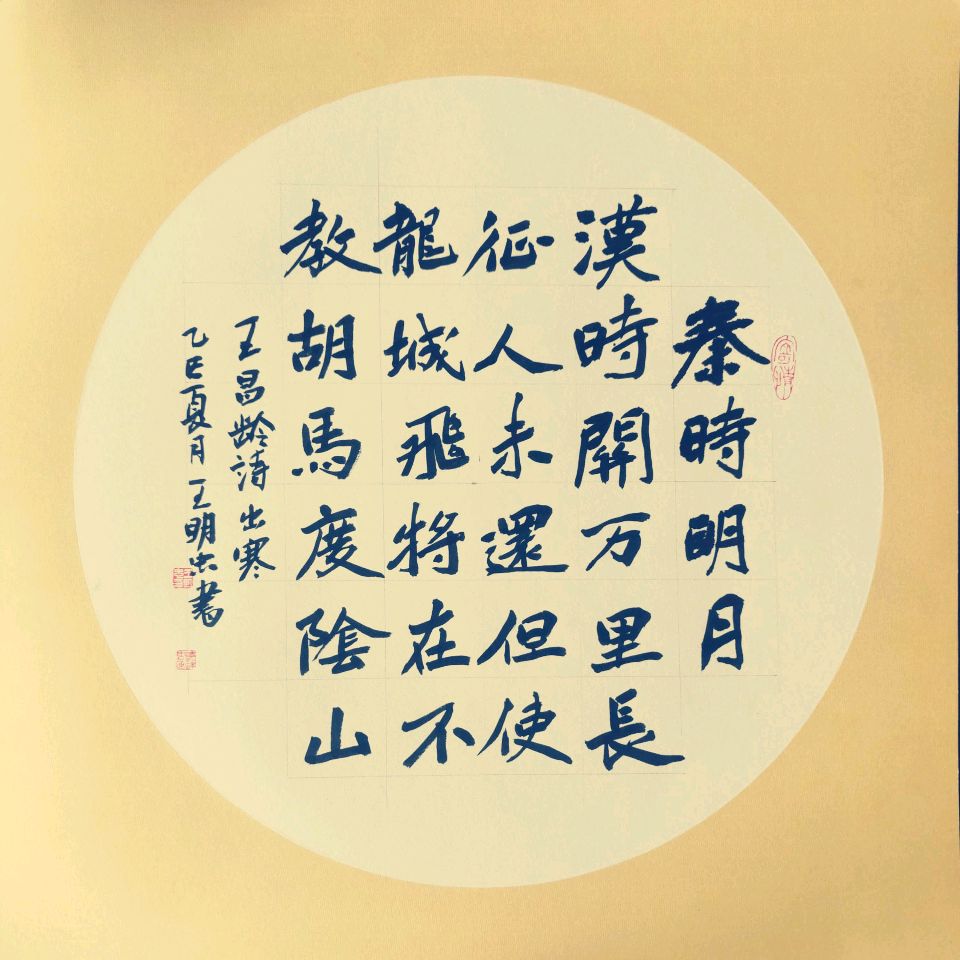 秦時明月
漢時開万里長
征人未還但使
龍城飛将在不
教胡馬度陰山
王昌龄詩出寒
乙巳夏月王明忠書